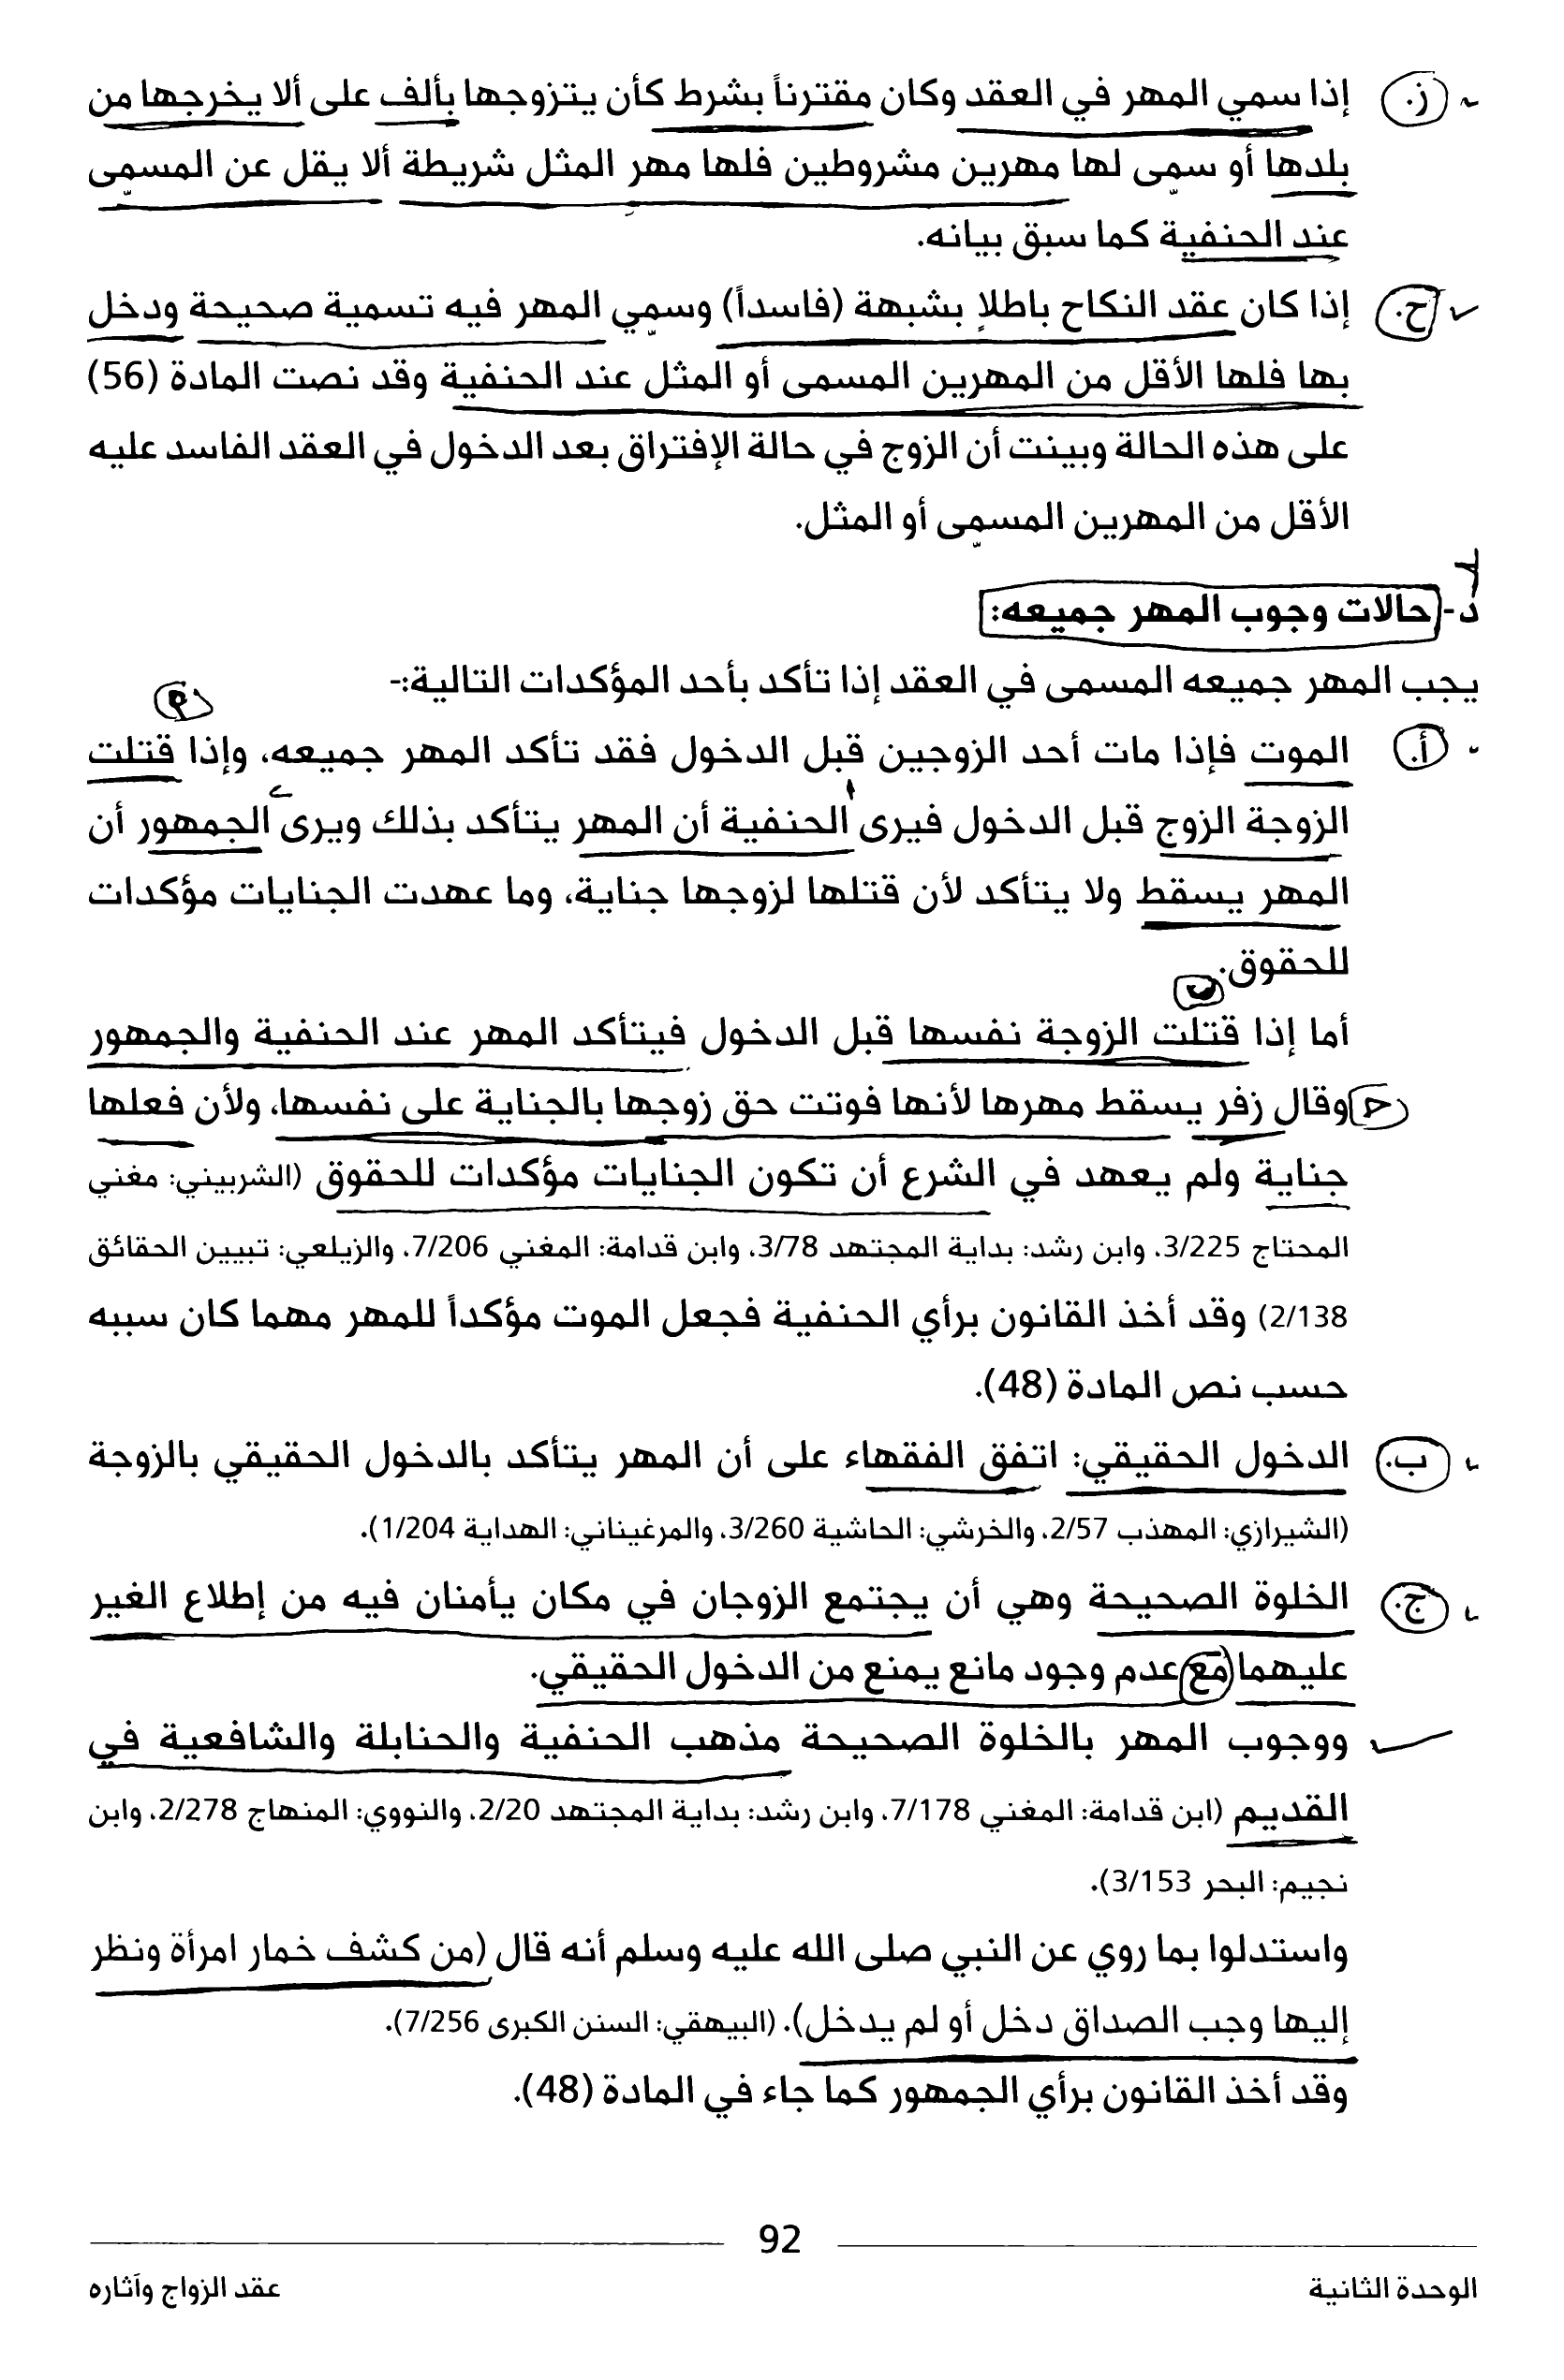 ز. إذا سمي المهر في العقد وكان مقترناً بشرط كأن يتزوجها بألف على ألا يخرجها من
بلدها أو سمّى لها مهرين مشروطين فلها مهر المثل شريطة ألا يقل عن المسمّى
عند الحنفية كما سبق بيانه.
ح. إذا كان عقد النكاح باطلاً بشبهة (فاسداً) وسمّي المهر فيه تسمية صحيحة ودخل
بها فلها الأقل من المهرين المسمى أو المثل عند الحنفية وقد نصت المادة (56)
على هذه الحالة وبينت أن الزوج في حالة الإفتراق بعد الدخول في العقد الفاسد عليه
الأقل من المهرين المسمّى أو المثل.
د- حالات وجوب المهر جميعه:
يجب المهر جميعه المسمى في العقد إذا تأكد بأحد المؤكدات التالية:-
أ. الموت فإذا مات أحد الزوجين قبل الدخول فقد تأكد المهر جميعه، وإذا قتلت
الزوجة الزوج قبل الدخول فيرى الحنفية أن المهر يتأكد بذلك ويرى الجمهور أن
المهر يسقط ولا يتأكد لأن قتلها لزوجها جناية، وما عهدت الجنايات مؤكدات
للحقوق.
أما إذا قتلت الزوجة نفسها قبل الدخول فيتأكد المهر عند الحنفية والجمهور
وقال زفر يسقط مهرها لأنها فوتت حق زوجها بالجناية على نفسها، ولأن فعلها
جناية ولم يعهد في الشرع أن تكون الجنايات مؤكدات للحقوق (الشربيني: مغني
المحتاج 3/225، وابن رشد: بداية المجتهد 3/78، وابن قدامة: المغني 7/206، والزيلعي: تبيين الحقائق
2/138) وقد أخذ القانون برأي الحنفية فجعل الموت مؤكداً للمهر مهما كان سببه
حسب نص المادة (48).
ب. الدخول الحقيقي: اتفق الفقهاء على أن المهر يتأكد بالدخول الحقيقي بالزوجة
(الشيرازي: المهذب 2/57، والخرشي: الحاشية 3/260، والمرغيناني: الهداية 1/204).
ج. الخلوة الصحيحة وهي أن يجتمع الزوجان في مكان يأمنان فيه من إطلاع الغير
عليهما مع عدم وجود مانع يمنع من الدخول الحقيقي.
ووجوب المهر بالخلوة الصحيحة مذهب الحنفية والحنابلة والشافعية في
القديم (ابن قدامة: المغني 7/178، وابن رشد: بداية المجتهد 2/20، والنووي: المنهاج 2/278، وابن
نجيم: البحر 3/153).
واستدلوا بما روي عن النبي صلى الله عليه وسلم أنه قال (من كشف خمار امرأة ونظر
إليها وجب الصداق دخل أو لم يدخل). (البيهقي: السنن الكبرى 7/256).
وقد أخذ القانون برأي الجمهور كما جاء في المادة (48).
92
الوحدة الثانية
عقد الزواج وآثاره